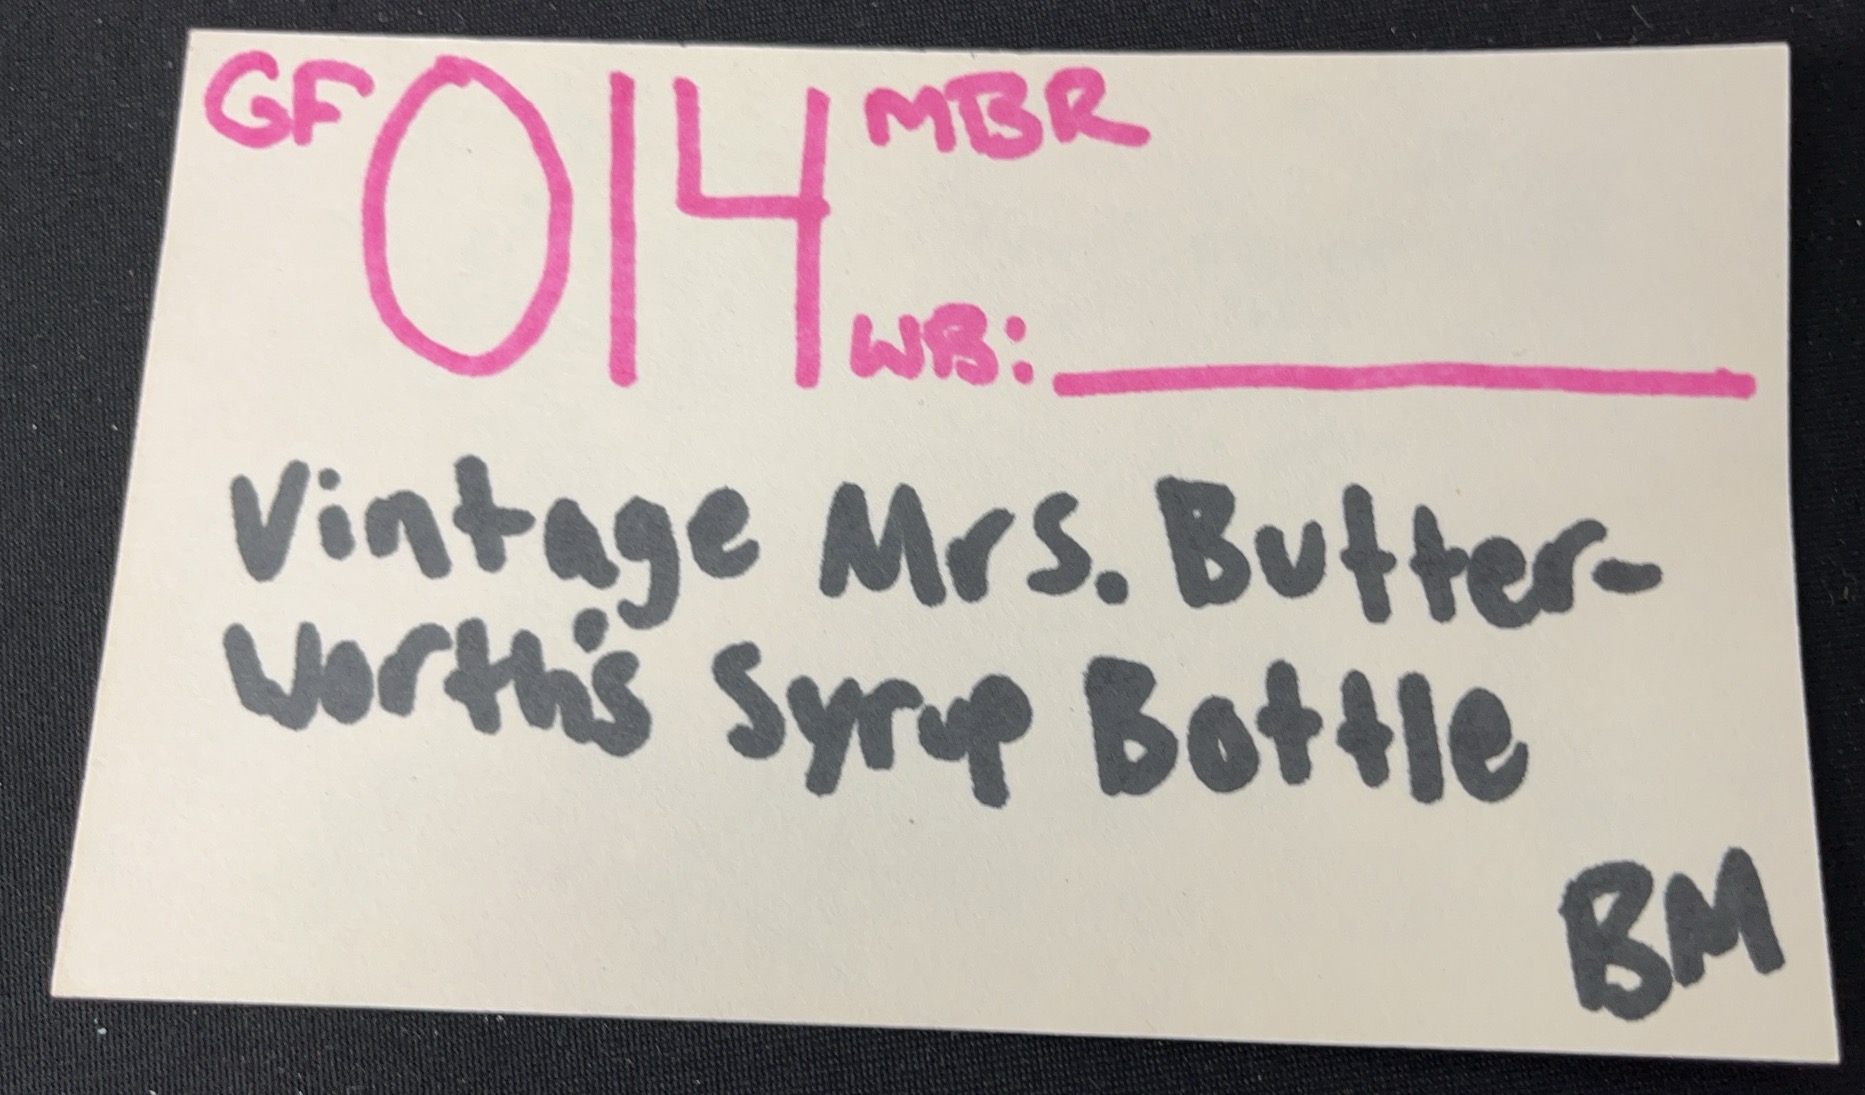 GF 014 MBR
WB:
Vintage Mrs. Butter-
Worth's Syrup Bottle
BM